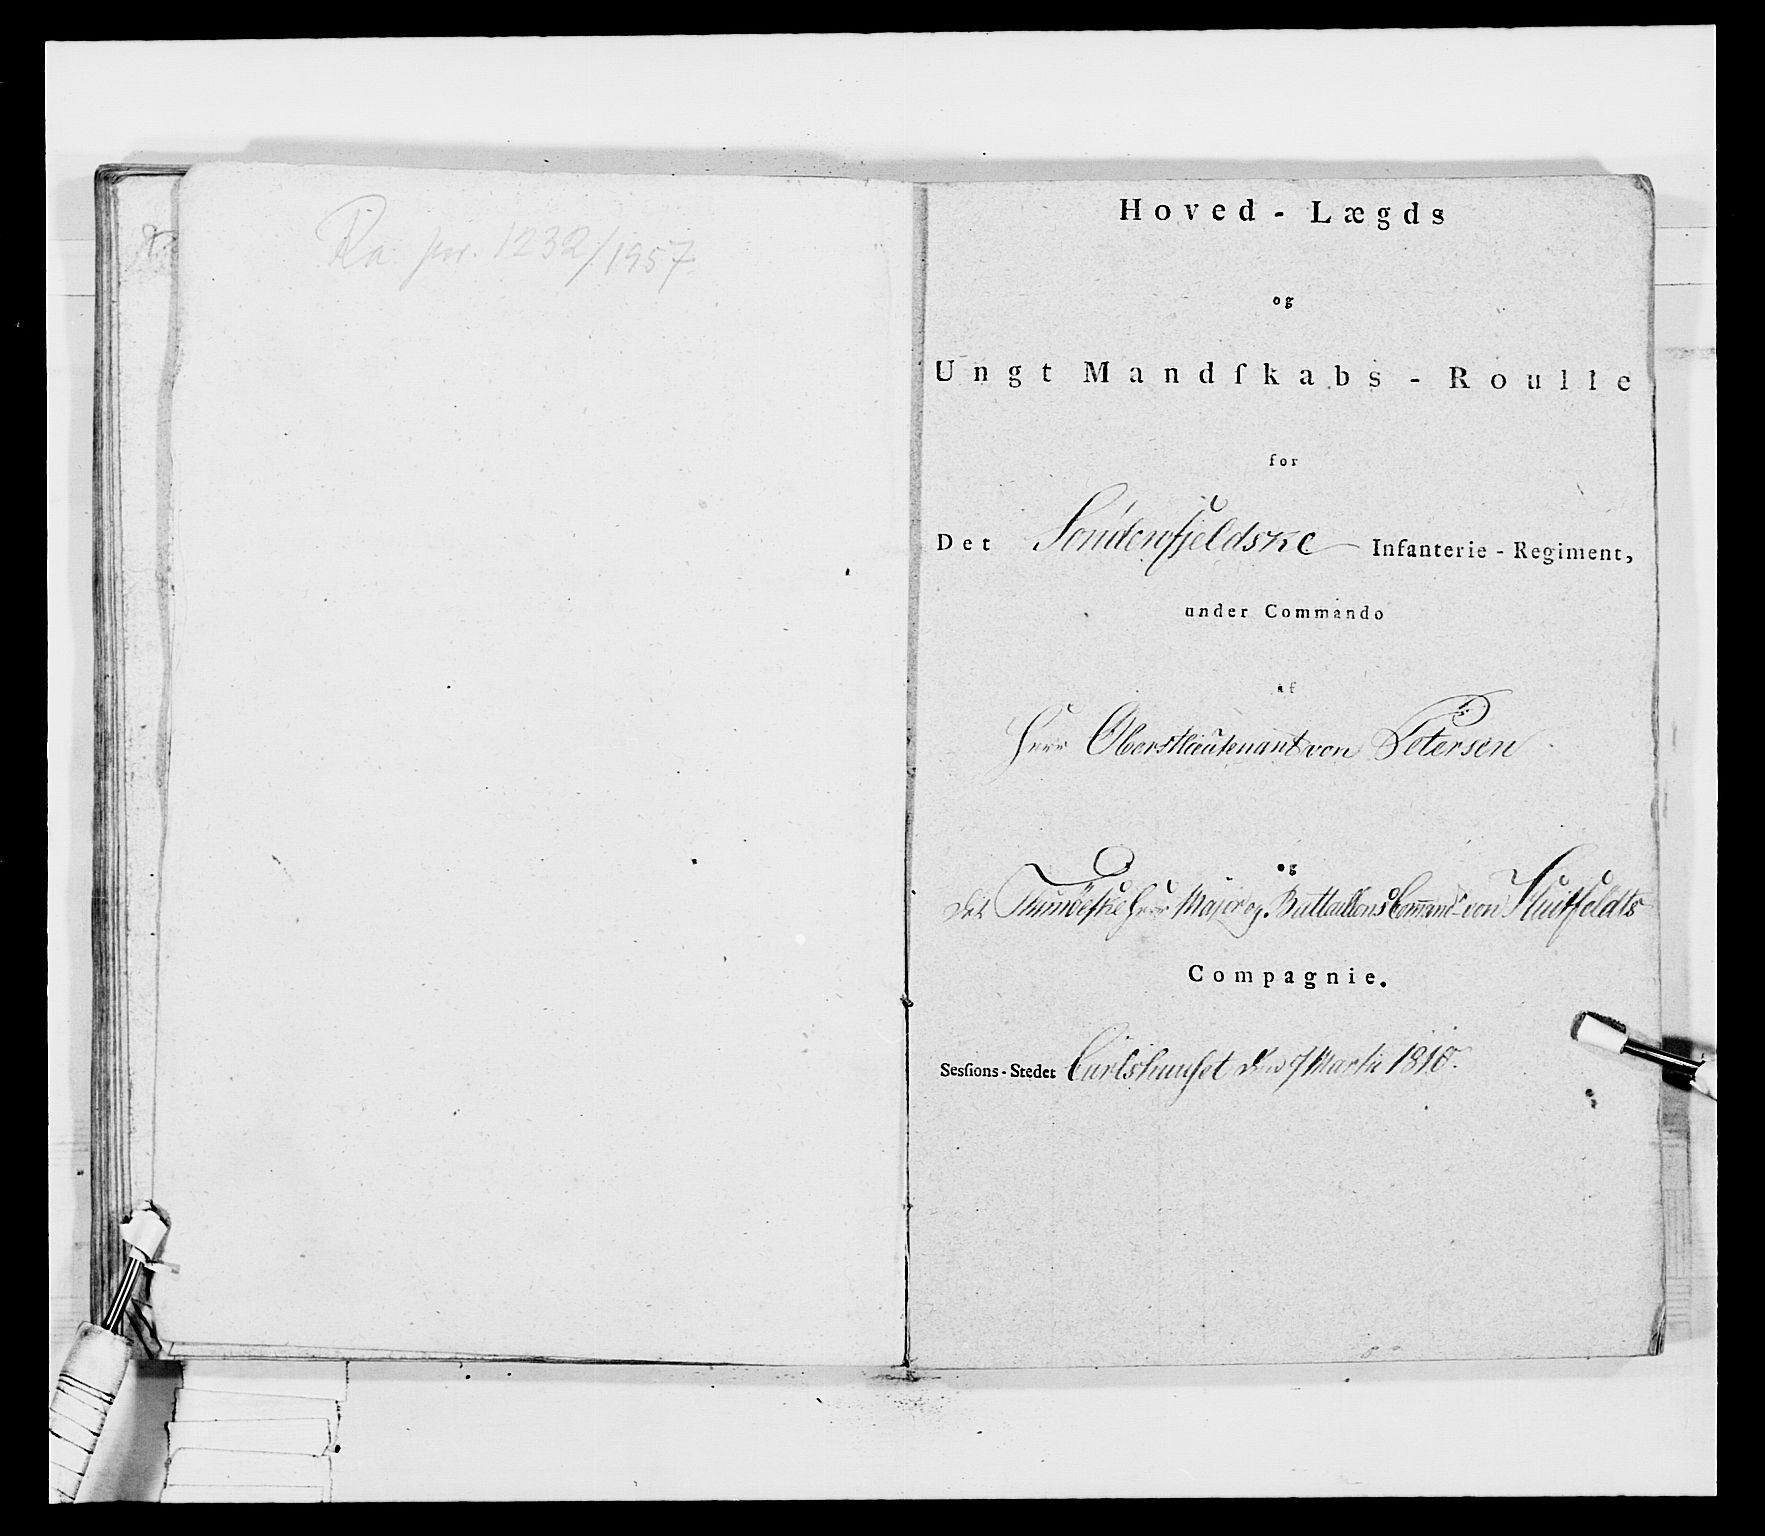 Ra. jnr. 1232/1957.
Hoved-Lægds
og
Ungt Mandſkabs-Roulle
for
Det Søndenfjeldske Infanterie-Regiment,
under Commando
af
Herr Oberstlieutenant von Petersen
og
Det Thunöeske Herr Major og Battaillons Command: von Huitfeldts
Compagnie.
Sesſions-Stedet Carlshuuset den 7 Martii 1810.